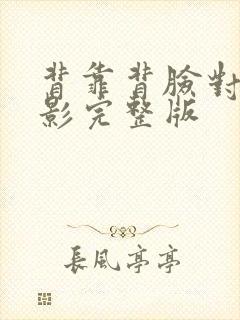 背靠背臉對
影完整版
長風亭亭